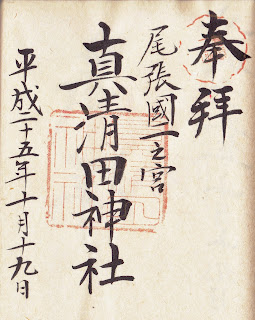 奉拝
尾張國一之宮
真清田神社
平成二十五年十月十九日